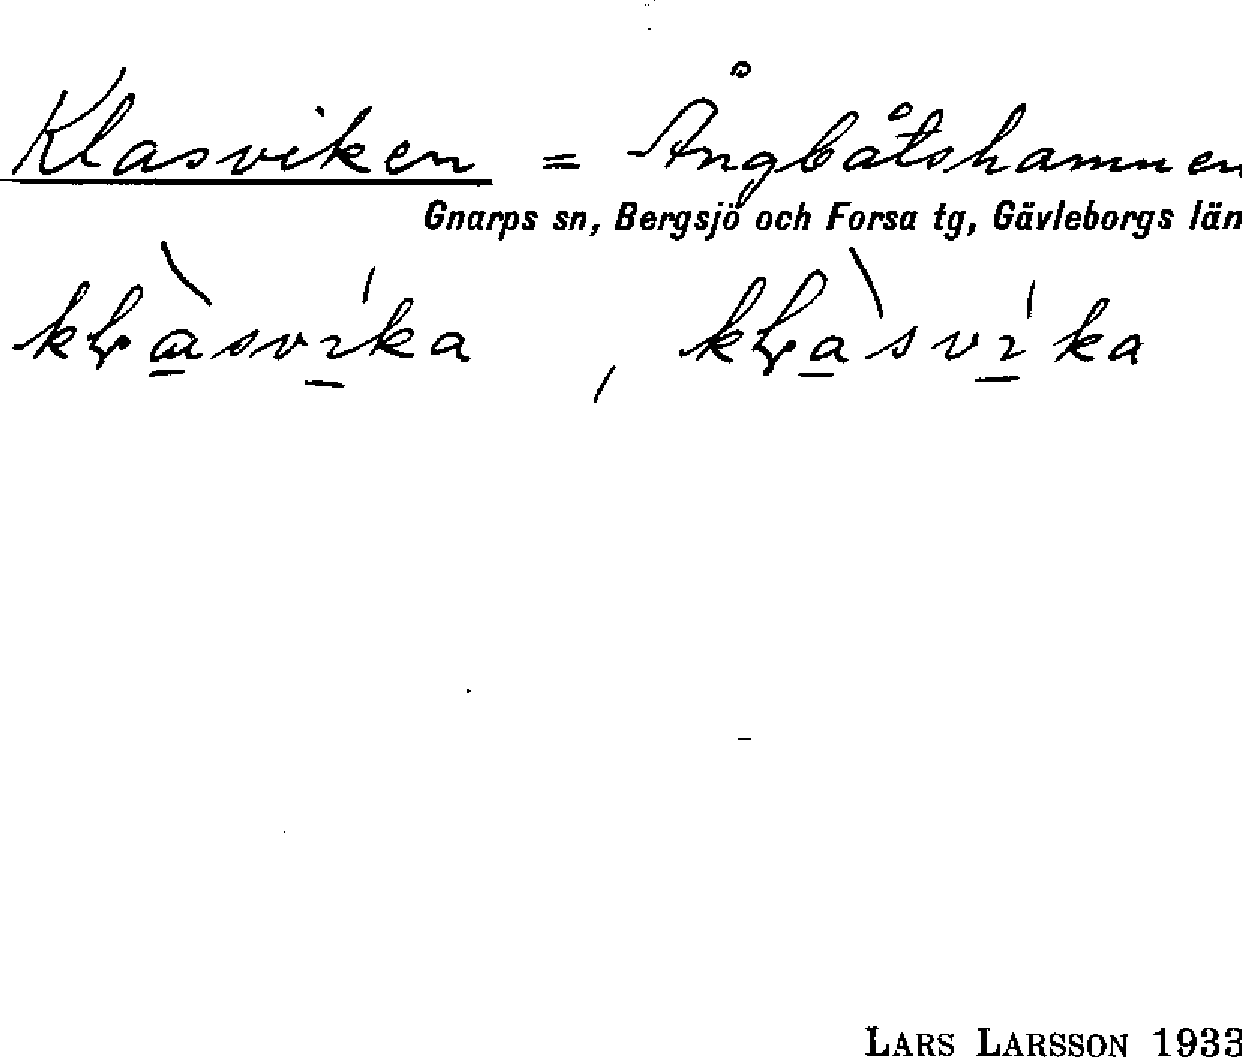 Klasviken = Ångbåtshamnen
Gnarps sn, Bergsjö och Forsa tg, Gävleborgs län
LARS LARSSON 1933